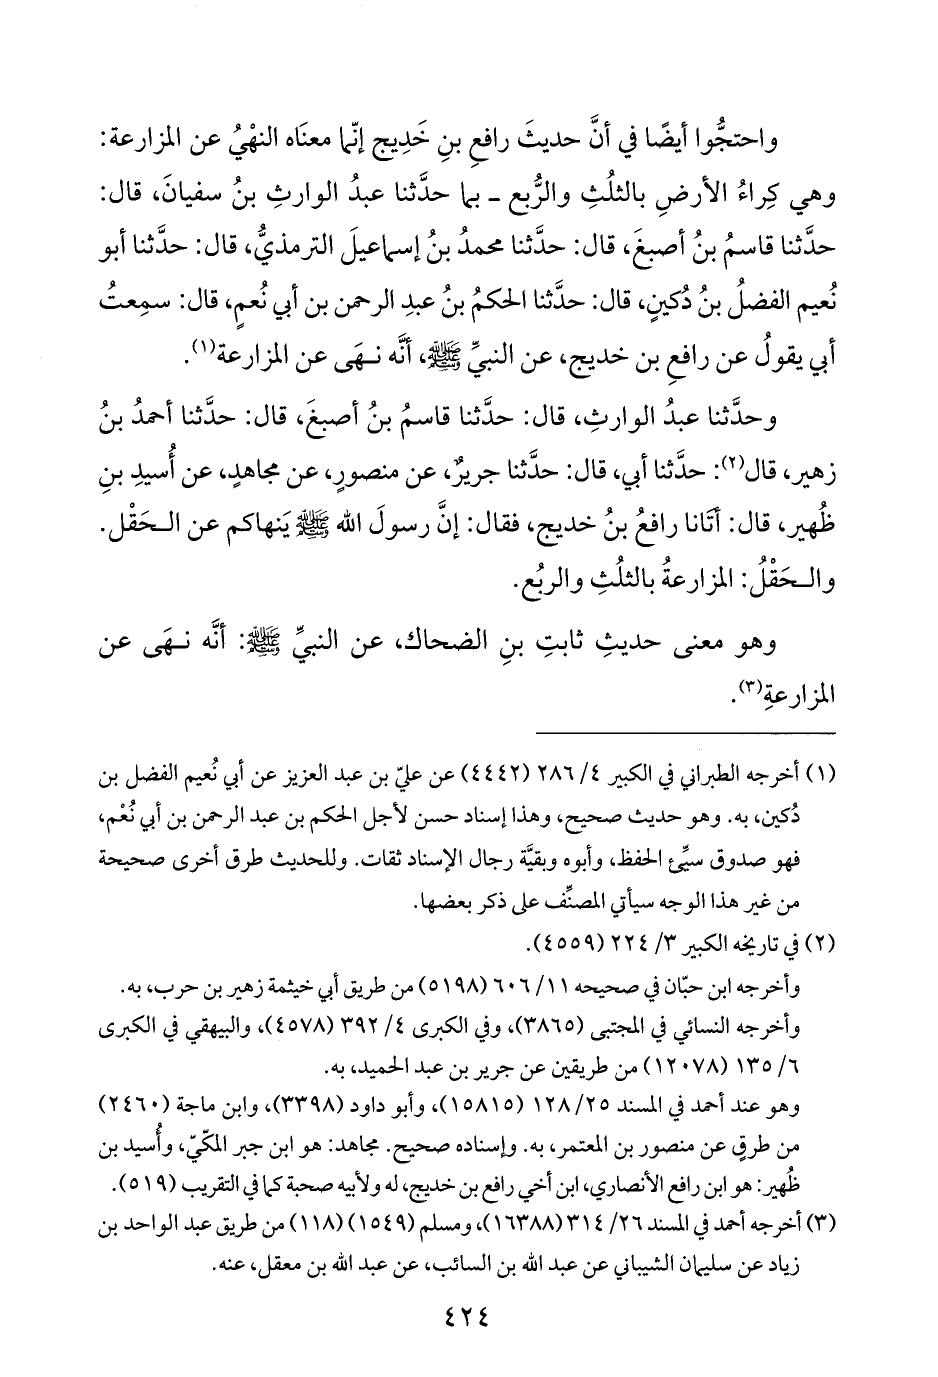 واحتجُّوا أيضًا في أنَّ حديثَ رافعِ بنِ خَدِيج إنّما معنَاه النهْيُ عن المزارعة:
وهي كِراءُ الأرضِ بالثلُثِ والرُّبع - بما حدَّثنا عبدُ الوارثِ بنُ سفيانَ، قال:
حدَّثنا قاسمُ بنُ أصبغَ، قال: حدَّثنا محمدُ بنُ إسماعيلَ الترمذيُّ، قال: حدَّثنا أبو
نُعيم الفضلُ بنُ دُكينٍ، قال: حدَّثنا الحكمُ بنُ عبدِ الرحمن بن أبي نُعمٍ، قال: سمِعتُ
أبي يقولُ عن رافعِ بن خديج، عن النبيِّ ﷺ، أنَّه نـهَى عن المزارعة(١).
وحدَّثنا عبدُ الوارثِ، قال: حدَّثنا قاسمُ بنُ أصبغَ، قال: حدَّثنا أحمدُ بنُ
زهير، قال(٢): حدَّثنا أبي، قال: حدَّثنا جريرٌ، عن منصورٍ، عن مجاهدٍ، عن أُسيدِ بنِ
ظُهير، قال: أتَانا رافعُ بنُ خديج، فقال: إنَّ رسولَ الله ﷺ يَنهاكم عن الـحَقْل.
والـحَقْلُ: المزارعةُ بالثلُثِ والربُع.
وهو معنى حديثِ ثابتِ بنِ الضحاك، عن النبيِّ ﷺ: أنَّه نـهَى عن
المزارعةِ(٣).
(١) أخرجه الطبراني في الكبير ٤/ ٢٨٦ (٤٤٤٢) عن عليّ بن عبد العزيز عن أبي نُعيم الفضل بن
دُكين، به. وهو حديث صحيح، وهذا إسناد حسن لأجل الحكم بن عبد الرحمن بن أبي نُعْم،
فهو صدوق سيِّئ الحفظ، وأبوه وبقيَّة رجال الإسناد ثقات. وللحديث طرق أخرى صحيحة
من غير هذا الوجه سيأتي المصنِّف على ذكر بعضها.
(٢) في تاريخه الكبير ٣/ ٢٢٤ (٤٥٥٩).
وأخرجه ابن حبّان في صحيحه ١١/ ٦٠٦ (٥١٩٨) من طريق أبي خيثمة زهير بن حرب، به.
وأخرجه النسائي في المجتبى (٣٨٦٥)، وفي الكبرى ٤/ ٣٩٢ (٤٥٧٨)، والبيهقي في الكبرى
٦/ ١٣٥ (١٢٠٧٨) من طريقين عن جرير بن عبد الحميد، به.
وهو عند أحمد في المسند ٢٥/ ١٢٨ (١٥٨١٥)، وأبو داود (٣٣٩٨)، وابن ماجة (٢٤٦٠)
من طرقٍ عن منصور بن المعتمر، به. وإسناده صحيح. مجاهد: هو ابن جبر المكّيّ، وأُسيد بن
ظُهير: هو ابن رافع الأنصاري، ابن أخي رافع بن خديج، له ولأبيه صحبة كما في التقريب (٥١٩).
(٣) أخرجه أحمد في المسند ٢٦/ ٣١٤ (١٦٣٨٨)، ومسلم (١٥٤٩) (١١٨) من طريق عبد الواحد بن
زياد عن سليمان الشيباني عن عبد الله بن السائب، عن عبد الله بن معقل، عنه.
٤٢٤